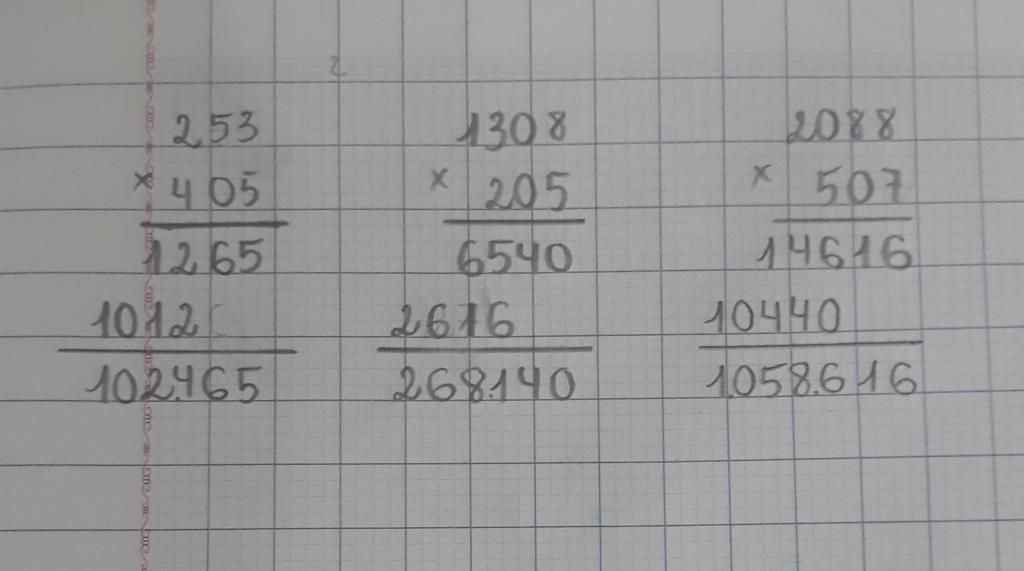 253 1308 2088
× 405 × 205 × 507
1265 6540 14616
1012 2616 10440
102.465 268.140 1.058.616